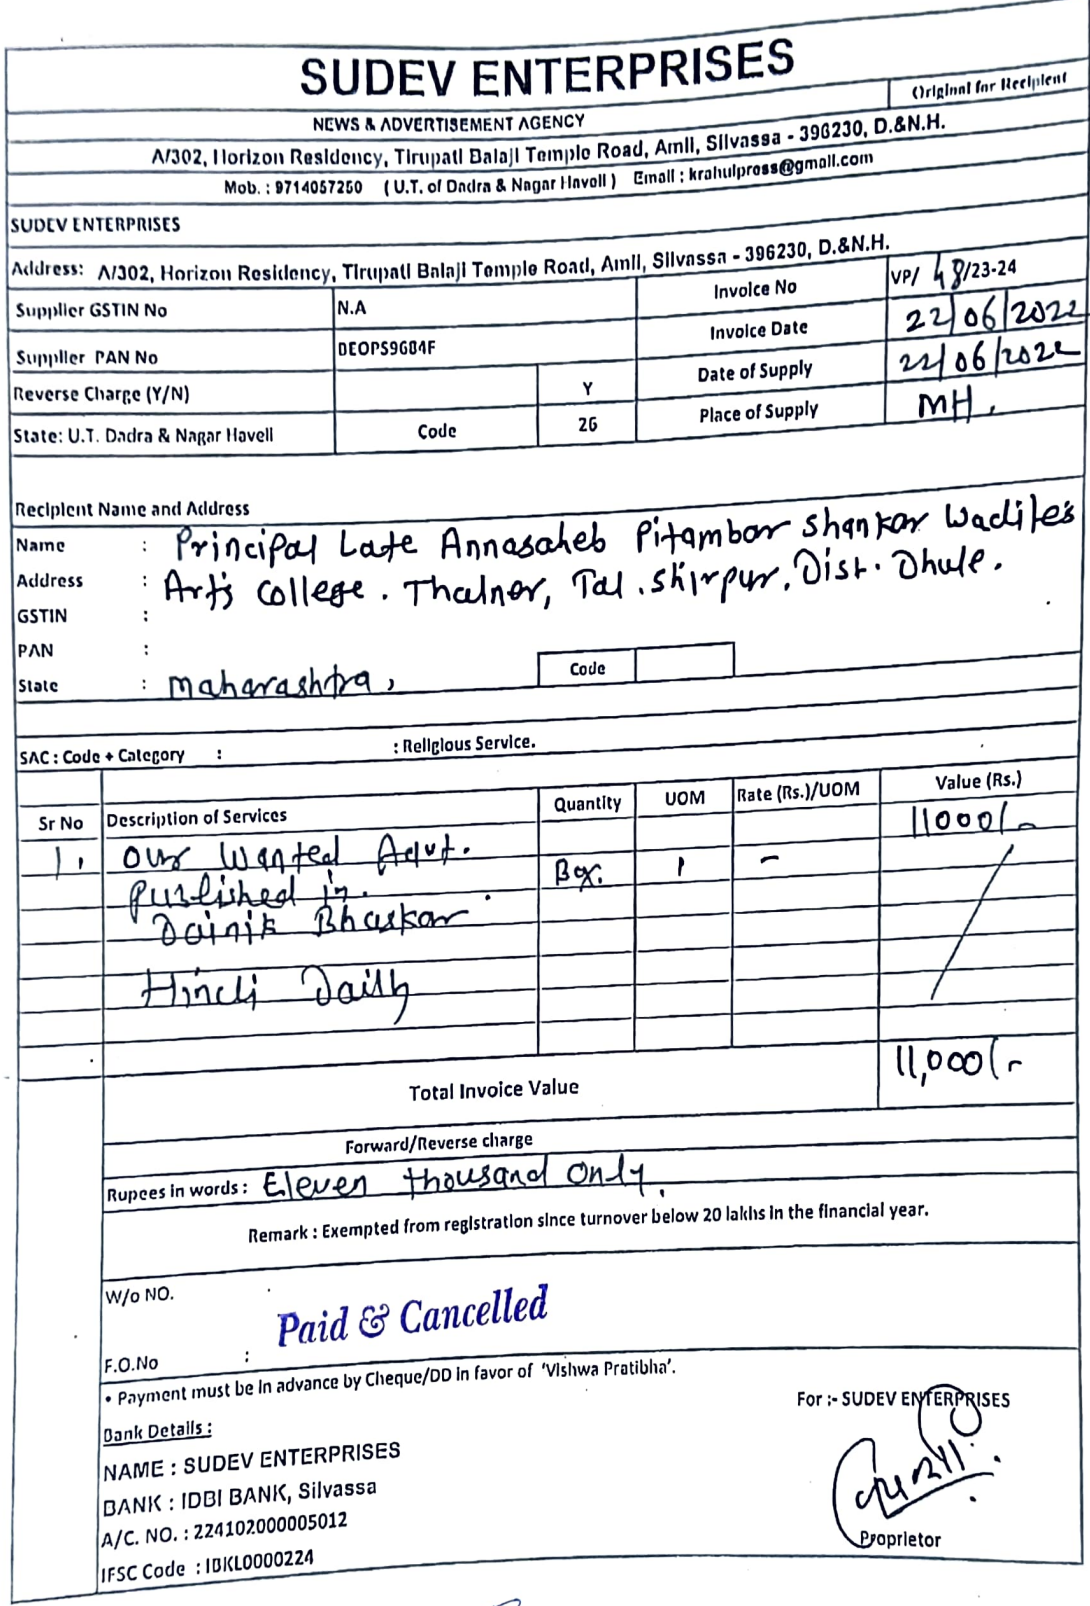 SUDEV ENTERPRISES
Original for Recipient
NEWS & ADVERTISEMENT AGENCY
A/302, Horizon Residency, Tirupati Balaji Temple Road, Amli, Silvassa - 396230, D.&N.H.
Mob. : 9714057260 ( U.T. of Dadra & Nagar Havell ) Email : krahulpross@gmail.com
SUDEV ENTERPRISES
Address: A/302, Horizon Residency, Tirupati Balaji Temple Road, Amli, Silvassa - 396230, D.&N.H.
Supplier GSTIN No N.A Invoice No VP/ 48/23-24
Invoice Date 22/06/2022
Supplier PAN No DEOPS9684F
Date of Supply 22/06/2022
Reverse Charge (Y/N) Y
Place of Supply MH.
State: U.T. Dadra & Nagar Havell Code 26
Recipient Name and Address
Name : Principal Late Annasaheb Pitambar Shankar Wadile's
Address : Art's College. Thalner, Tal. Shirpur. Dist. Dhule.
GSTIN :
PAN :
State : Maharashtra, Code
SAC : Code + Category : : Religious Service.
Sr No Description of Services Quantity UOM Rate (Rs.)/UOM Value (Rs.)
1. Our Wanted Advt. 11000/-
Published in. Box. 1 -
Dainik Bhaskar
Hindi Daily
Total Invoice Value 11,000/-
Forward/Reverse charge
Rupees in words : Eleven thousand only.
Remark : Exempted from registration since turnover below 20 lakhs in the financial year.
W/o NO.
Paid & Cancelled
F.O.No :
• Payment must be in advance by Cheque/DD in favor of 'Vishwa Pratibha'.
For :- SUDEV ENTERPRISES
Bank Details :
NAME : SUDEV ENTERPRISES
BANK : IDBI BANK, Silvassa
A/C. NO. : 224102000005012
IFSC Code : IBKL0000224
Proprietor